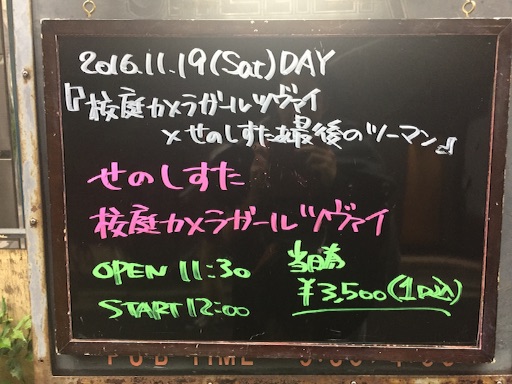 2016.11.19(Sat) DAY
『校庭カメラガールツヴァイ
×せのしすた最後のツーマン』
せのしすた
校庭カメラガールツヴァイ
OPEN 11:30
START 12:00
当日券
¥3,500(1D込)
PUB TIME